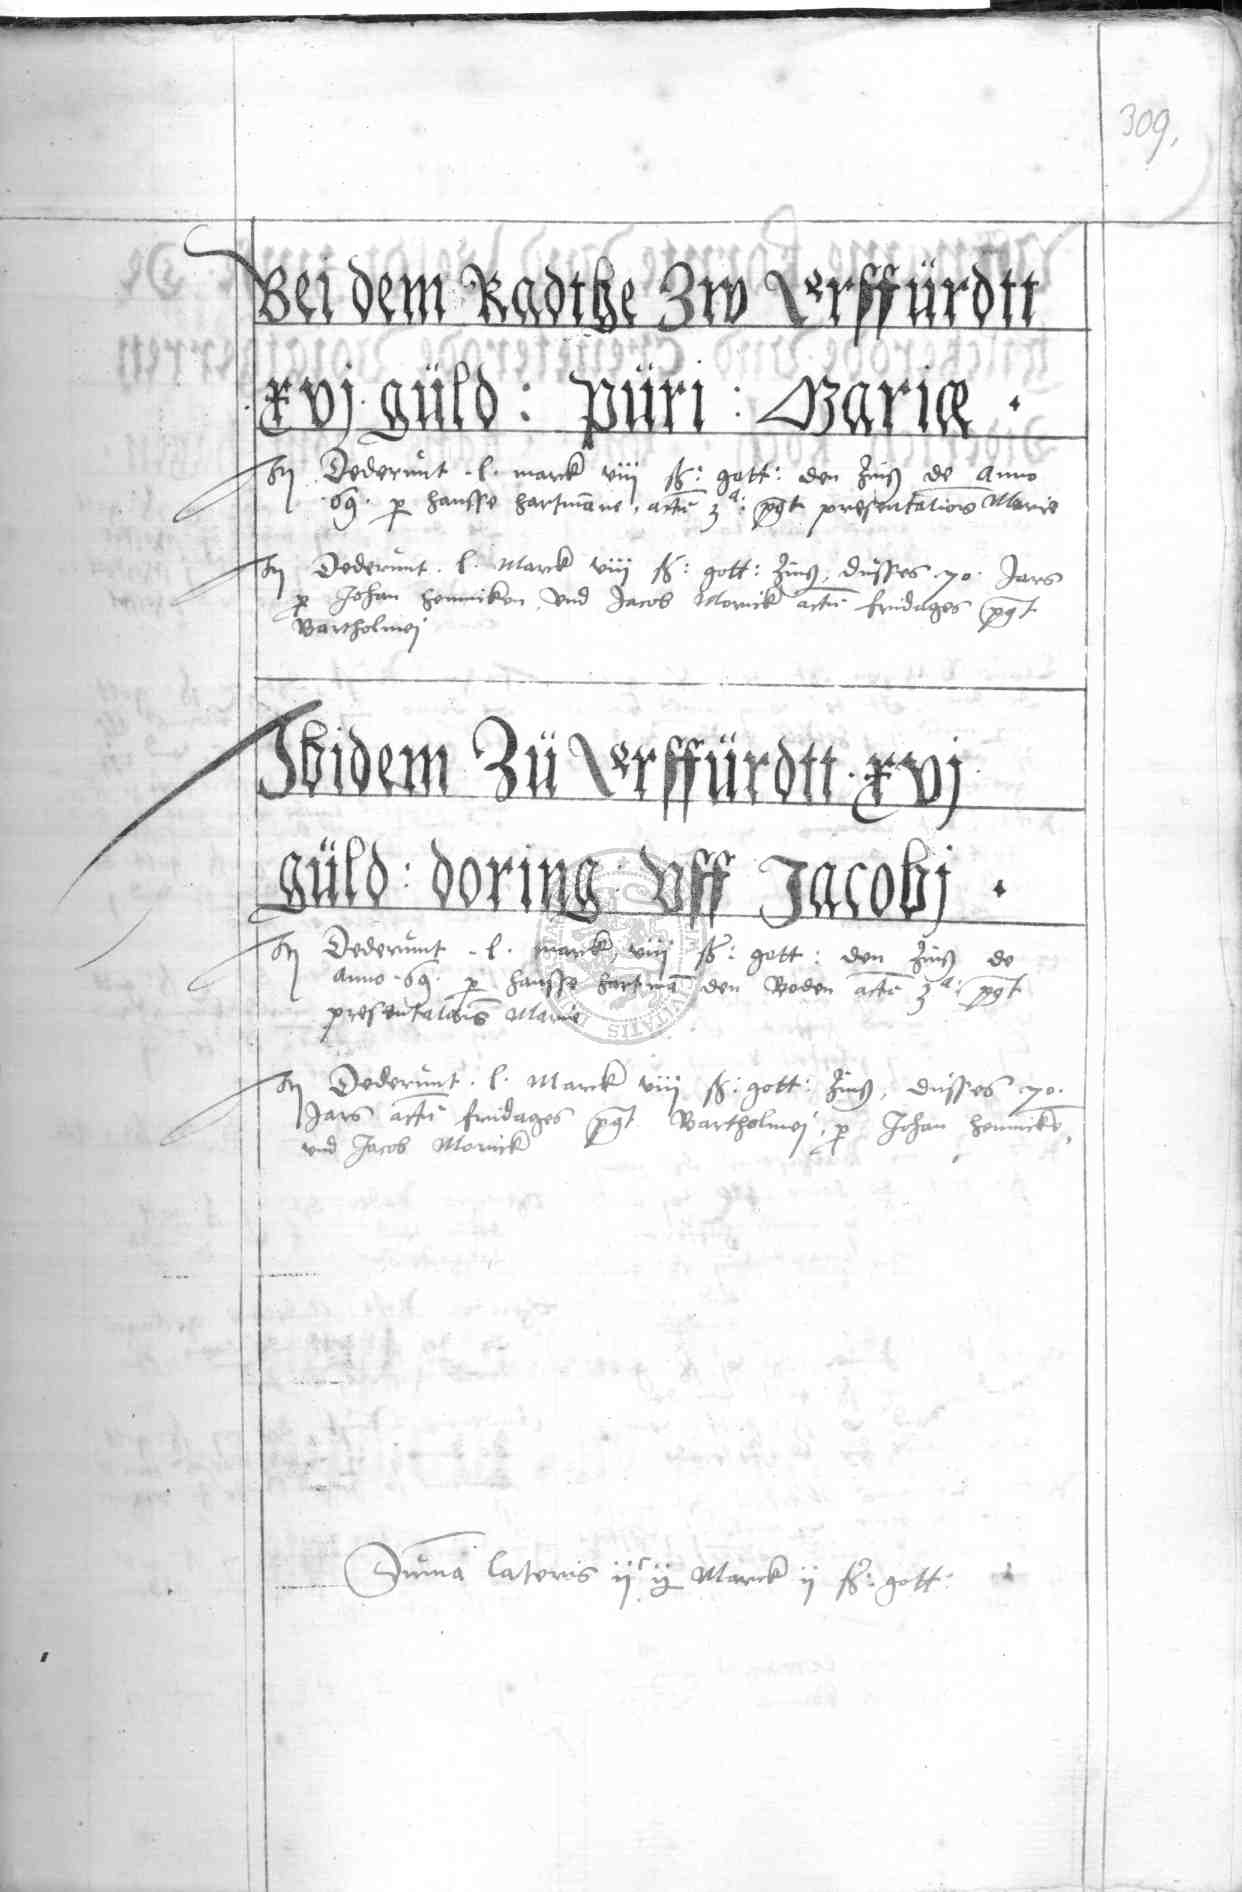 309.
Bei dem Radthe Zw Erffürdtt
xvj güld : püri : Mariæ .
Dederunt . l . marck viij ß : gott : den Zinß de Anno
.69. p hansse hartmāne , actū 3ª : pq̄t presentationis Marie
Dederunt . l . Marck viij ß : gott : Zinß , dusses 70. Jars
p Johan henniken vnd Jacob Mornick actū fridages pq̄t
Bartholmej
Jbidem Zü Erffürdtt . xvj
güld : doring vff Jacobj .
Dederunt . l . marck viij ß : gott : den Zinß de
Anno .69. p hansse hartmā den Boden actū 3ª : pq̄t
presentatiōis Marie
Dederunt . l . Marck viij ß : gott : Zinß , dusses 70.
Jars actū fridages pq̄t Bartholmej , p Johan hennickē ,
vnd Jacob Mornick
Suma lateris ijc ij Marck ij ß : gott :